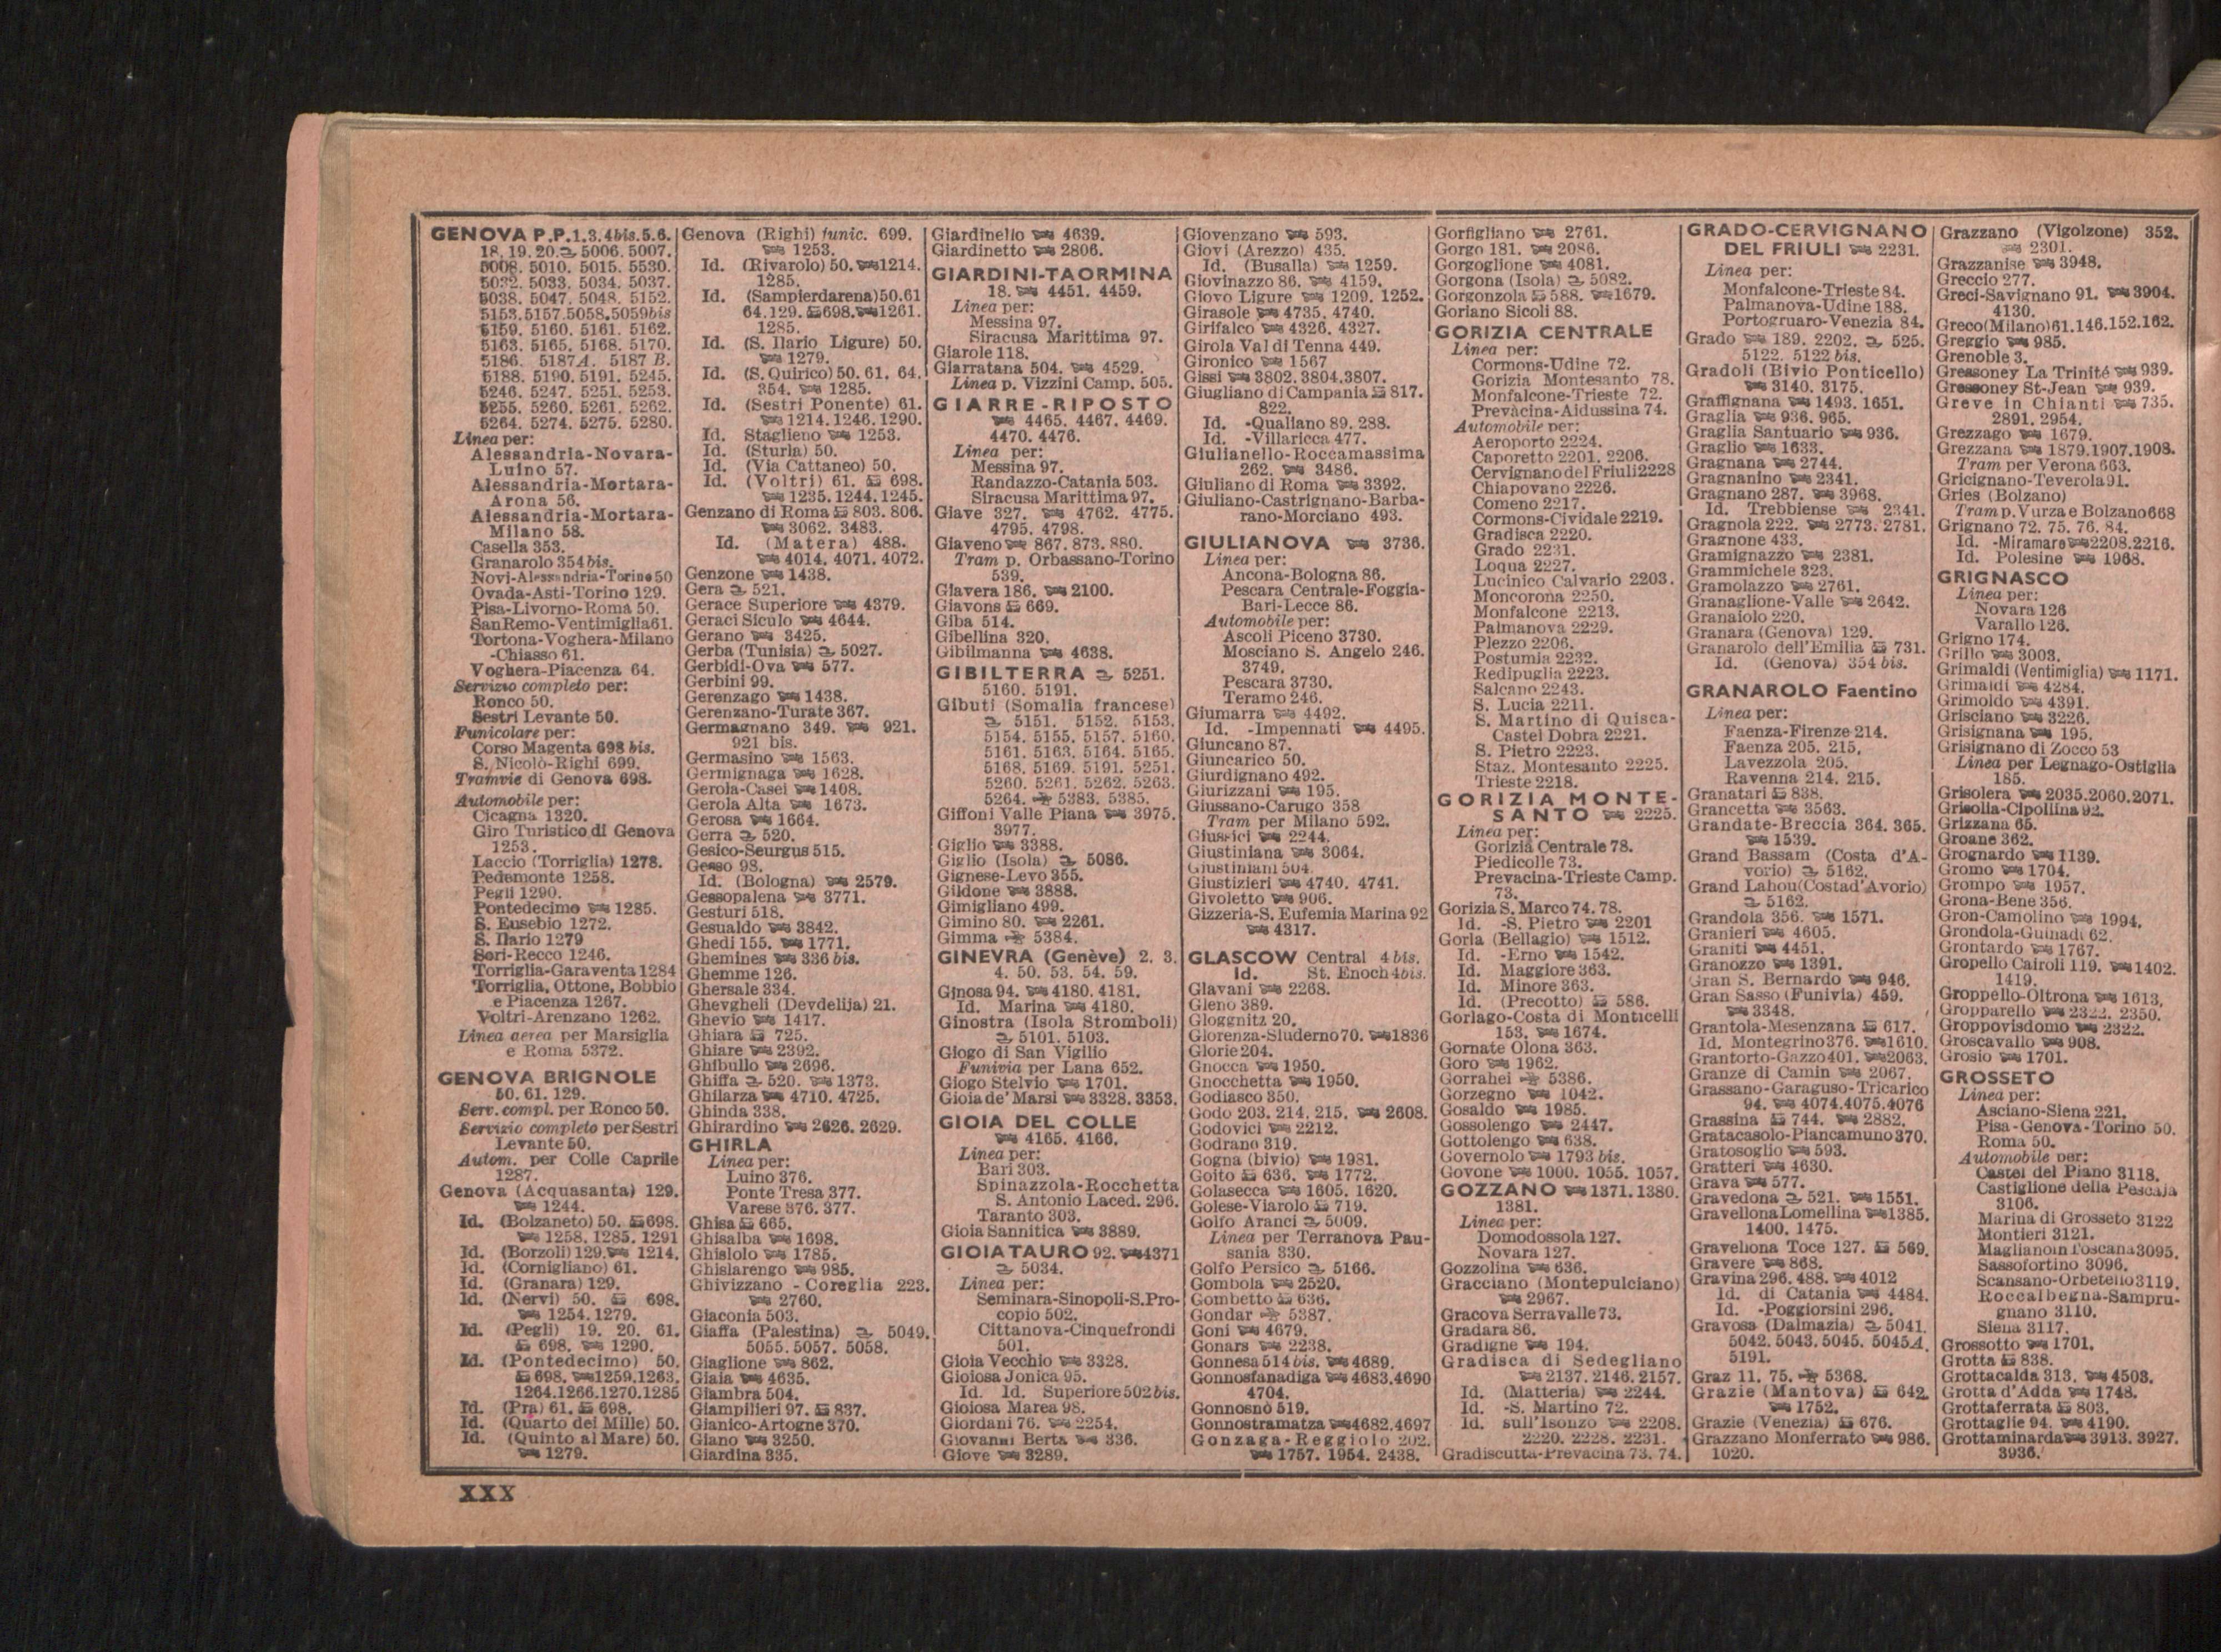 GENOVA P.P.1.3.4bis.5.6.
18. 19. 20. 5006. 5007.
5008. 5010. 5015. 5530.
5032. 5033. 5034. 5037.
5038. 5047. 5048. 5152.
5153.5157.5058.5059bis
5159. 5160. 5161. 5162.
5163. 5165. 5168. 5170.
5186. 5187A. 5187 B.
5188. 5190. 5191. 5245.
5246. 5247. 5251. 5253.
5255. 5260. 5261. 5262.
5264. 5274. 5275. 5280.
Linea per:
Alessandria-Novara-
Luino 57.
Alessandria-Mortara-
Arona 56.
Alessandria-Mortara-
Milano 58.
Casella 353.
Granarolo 354bis.
Novi-Alessandria-Torino 50
Ovada-Asti-Torino 129.
Pisa-Livorno-Roma 50.
SanRemo-Ventimiglia61.
Tortona-Voghera-Milano
-Chiasso 61.
Voghera-Piacenza 64.
Servizio completo per:
Ronco 50.
Sestri Levante 50.
Funicolare per:
Corso Magenta 698 bis.
S. Nicolò-Righi 699.
Tramvie di Genova 698.
Automobile per:
Cicagna 1320.
Giro Turistico di Genova
1253.
Laccio (Torriglia) 1278.
Pedemonte 1258.
Pegli 1290.
Pontedecimo 1285.
S. Eusebio 1272.
S. Ilario 1279
Sori-Recco 1246.
Torriglia-Garaventa 1284
Torriglia, Ottone, Bobbio
e Piacenza 1267.
Voltri-Arenzano 1262.
Linea aerea per Marsiglia
e Roma 5372.
GENOVA BRIGNOLE
50. 61. 129.
Serv. compl. per Ronco 50.
Servizio completo per Sestri
Levante 50.
Autom. per Colle Caprile
1287.
Genova (Acquasanta) 129.
1244.
Id. (Bolzaneto) 50. 698.
1258. 1285. 1291
Id. (Borzoli) 129. 1214.
Id. (Cornigliano) 61.
Id. (Granara) 129.
Id. (Nervi) 50. 698.
1254. 1279.
Id. (Pegli) 19. 20. 61.
698. 1290.
Id. (Pontedecimo) 50.
698. 1259.1263.
1264.1266.1270.1285
Id. (Prà) 61. 698.
Id. (Quarto dei Mille) 50.
Id. (Quinto al Mare) 50.
1279.
Genova (Righi) funic. 699.
1253.
Id. (Rivarolo) 50. 1214.
1285.
Id. (Sampierdarena)50.61
64.129. 698. 1261.
1285.
Id. (S. Ilario Ligure) 50.
1279.
Id. (S. Quirico) 50. 61. 64.
354. 1285.
Id. (Sestri Ponente) 61.
1214. 1246. 1290.
Id. Staglieno 1253.
Id. (Sturla) 50.
Id. (Via Cattaneo) 50.
Id. (Voltri) 61. 698.
1235. 1244. 1245.
Genzano di Roma 803. 806.
3062. 3483.
Id. (Matera) 488.
4014. 4071. 4072.
Genzone 1438.
Gera 521.
Gerace Superiore 4379.
Geraci Siculo 4644.
Gerano 3425.
Gerba (Tunisia) 5027.
Gerbidi-Ova 577.
Gerbini 99.
Gerenzago 1438.
Gerenzano-Turate 367.
Germagnano 349. 921.
921 bis.
Germasino 1563.
Germignaga 1628.
Gerola-Casei 1408.
Gerola Alta 1673.
Gerosa 1664.
Gerra 520.
Gesico-Seurgus 515.
Gesso 98.
Id. (Bologna) 2579.
Gessopalena 3771.
Gesturi 518.
Gesualdo 3842.
Ghedi 155. 1771.
Ghemines 336 bis.
Ghemme 126.
Ghersale 334.
Ghevgheli (Devdelija) 21.
Ghevio 1417.
Ghiara 725.
Ghiare 2392.
Ghibullo 2696.
Ghiffa 520. 1373.
Ghilarza 4710. 4725.
Ghinda 338.
Ghirardino 2626. 2629.
GHIRLA
Linea per:
Luino 376.
Ponte Tresa 377.
Varese 376. 377.
Ghisa 665.
Ghisalba 1698.
Ghislolo 1785.
Ghislarengo 985.
Ghivizzano - Coreglia 223.
2760.
Giaconia 503.
Giaffa (Palestina) 5049.
5055. 5057. 5058.
Giaglione 862.
Giaia 4635.
Giambra 504.
Giampilieri 97. 837.
Gianico-Artogne 370.
Giano 3250.
Giardina 335.
Giardinello 4639.
Giardinetto 2806.
GIARDINI-TAORMINA
18. 4451. 4459.
Linea per:
Messina 97.
Siracusa Marittima 97.
Giarole 118.
Giarratana 504. 4529.
Linea p. Vizzini Camp. 505.
GIARRE-RIPOSTO
4465. 4467. 4469.
4470. 4476.
Linea per:
Messina 97.
Randazzo-Catania 503.
Siracusa Marittima 97.
Giave 327. 4762. 4775.
4795. 4798.
Giaveno 867. 873. 880.
Tram p. Orbassano-Torino
539.
Giavera 186. 2100.
Giavons 669.
Giba 514.
Gibellina 320.
Gibilmanna 4638.
GIBILTERRA 5251.
5160. 5191.
Gibuti (Somalia francese)
5151. 5152. 5153.
5154. 5155. 5157. 5160.
5161. 5163. 5164. 5165.
5168. 5169. 5191. 5251.
5260. 5261. 5262. 5263.
5264. 5383. 5385.
Giffoni Valle Piana 3975.
3977.
Giglio 3388.
Giglio (Isola) 5086.
Gignese-Levo 355.
Gildone 3888.
Gimigliano 499.
Gimino 80. 2261.
Gimma 5384.
GINEVRA (Genève) 2. 3.
4. 50. 53. 54. 59.
Ginosa 94. 4180. 4181.
Id. Marina 4180.
Ginostra (Isola Stromboli)
5101. 5103.
Giogo di San Vigilio
Funivia per Lana 652.
Giogo Stelvio 1701.
Gioia de' Marsi 3328. 3353.
GIOIA DEL COLLE
4165. 4166.
Linea per:
Bari 303.
Spinazzola-Rocchetta
S. Antonio Laced. 296.
Taranto 303.
Gioia Sannitica 3889.
GIOIA TAURO 92. 4371
5034.
Linea per:
Seminara-Sinopoli-S.Pro-
copio 502.
Cittanova-Cinquefrondi
501.
Gioia Vecchio 3328.
Gioiosa Jonica 95.
Id. Id. Superiore 502bis.
Gioiosa Marea 98.
Giordani 76. 2254.
Giovanni Berta 336.
Giove 3289.
Giovenzano 593.
Giovi (Arezzo) 435.
Id. (Busalla) 1259.
Giovinazzo 86. 4159.
Giovo Ligure 1209. 1252.
Girasole 4735. 4740.
Girifalco 4326. 4327.
Girola Val di Tenna 449.
Gironico 1567
Gissi 3802. 3804.3807.
Giugliano di Campania 817.
822.
Id. -Qualiano 89. 288.
Id. -Villaricca 477.
Giulianello-Roccamassima
262. 3486.
Giuliano di Roma 3392.
Giuliano-Castrignano-Barba-
rano-Morciano 493.
GIULIANOVA 3736.
Linea per:
Ancona-Bologna 86.
Pescara Centrale-Foggia-
Bari-Lecce 86.
Automobile per:
Ascoli Piceno 3730.
Mosciano S. Angelo 246.
3749.
Pescara 3730.
Teramo 246.
Giumarra 4492.
Id. -Impennati 4495.
Giuncano 87.
Giuncarico 50.
Giurdignano 492.
Giurizzani 195.
Giussano-Carugo 358
Tram per Milano 592.
Giussici 2244.
Giustiniana 3064.
Giustiniani 504.
Giustizieri 4740. 4741.
Givoletto 906.
Gizzeria-S. Eufemia Marina 92
4317.
GLASCOW Central 4 bis.
Id. St. Enoch 4bis.
Glavani 2268.
Gleno 389.
Gloggnitz 20.
Glorenza-Sluderno 70. 1836
Glorie 204.
Gnocca 1950.
Gnocchetta 1950.
Godiasco 350.
Godo 203. 214. 215. 2608.
Godovici 2212.
Godrano 319.
Gogna (bivio) 1981.
Goito 636. 1772.
Golasecca 1605. 1620.
Golese-Viarolo 719.
Golfo Aranci 5009.
Linea per Terranova Pau-
sania 330.
Golfo Persico 5166.
Gombola 2520.
Gombetto 636.
Gondar 5387.
Goni 4679.
Gonars 2238.
Gonnesa 514 bis. 4689.
Gonnosfanadiga 4683.4690
4704.
Gonnosnò 519.
Gonnostramatza 4682.4697
Gonzaga-Reggiolo 202.
1757. 1954. 2438.
Gorfigliano 2761.
Gorgo 181. 2086.
Gorgoglione 4081.
Gorgona (Isola) 5082.
Gorgonzola 588. 1679.
Goriano Sicoli 88.
GORIZIA CENTRALE
Linea per:
Cormons-Udine 72.
Gorizia Montesanto 78.
Monfalcone-Trieste 72.
Prevàcina-Aidussina 74.
Automobile per:
Aeroporto 2224.
Caporetto 2201. 2206.
Cervignano del Friuli 2228
Chiapovano 2226.
Comeno 2217.
Cormons-Cividale 2219.
Gradisca 2220.
Grado 2231.
Loqua 2227.
Lucinico Calvario 2203.
Moncorona 2250.
Monfalcone 2213.
Palmanova 2229.
Plezzo 2206.
Postumia 2232.
Redipuglia 2223.
Salcano 2243.
S. Lucia 2211.
S. Martino di Quisca-
Castel Dobra 2221.
S. Pietro 2223.
Staz. Montesanto 2225.
Trieste 2218.
GORIZIA MONTE-
SANTO 2225.
Linea per:
Gorizia Centrale 78.
Piedicolle 73.
Prevacina-Trieste Camp.
73.
Gorizia S. Marco 74. 78.
Id. -S. Pietro 2201
Gorla (Bellagio) 1512.
Id. -Erno 1542.
Id. Maggiore 363.
Id. Minore 363.
Id. (Precotto) 586.
Gorlago-Costa di Monticelli
153. 1674.
Gornate Olona 363.
Goro 1962.
Gorrahei 5386.
Gorzegno 1042.
Gosaldo 1985.
Gossolengo 2447.
Gottolengo 638.
Governolo 1793 bis.
Govone 1000. 1055. 1057.
GOZZANO 1371. 1380.
1381.
Linea per:
Domodossola 127.
Novara 127.
Gozzolina 636.
Gracciano (Montepulciano)
2967.
Gracova Serravalle 73.
Gradara 86.
Gradigne 194.
Gradisca di Sedegliano
2137. 2146. 2157.
Id. (Matteria) 2244.
Id. -S. Martino 72.
Id. sull'Isonzo 2208.
2220. 2228. 2231.
Gradiscutta-Prevacina 73. 74.
GRADO-CERVIGNANO
DEL FRIULI 2231.
Linea per:
Monfalcone-Trieste 84.
Palmanova-Udine 188.
Portogruaro-Venezia 84.
Grado 189. 2202. 525.
5122. 5122 bis.
Gradoli (Bivio Ponticello)
3140. 3175.
Graffignana 1493. 1651.
Graglia 936. 965.
Graglia Santuario 936.
Graglio 1633.
Gragnana 2744.
Gragnanino 2341.
Gragnano 287. 3968.
Id. Trebbiense 2341.
Gragnola 222. 2773. 2781.
Gragnone 433.
Gramignazzo 2381.
Grammichele 323.
Gramolazzo 2761.
Granaglione-Valle 2642.
Granaiolo 220.
Granara (Genova) 129.
Granarolo dell'Emilia 731.
Id. (Genova) 354 bis.
GRANAROLO Faentino
Linea per:
Faenza-Firenze 214.
Faenza 205. 215.
Lavezzola 205.
Ravenna 214. 215.
Granatari 838.
Grancetta 3563.
Grandate-Breccia 364. 365.
1539.
Grand Bassam (Costa d'A-
vorio) 5162.
Grand Lahou(Costad'Avorio)
5162.
Grandola 356. 1571.
Granieri 4605.
Graniti 4451.
Granozzo 1391.
Gran S. Bernardo 946.
Gran Sasso (Funivia) 459.
3348.
Grantola-Mesenzana 617.
Id. Montegrino 376. 1610.
Grantorto-Gazzo 401. 2063.
Granze di Camin 2067.
Grassano-Garaguso-Tricarico
94. 4074.4075.4076
Grassina 744. 2882.
Gratacasolo-Piancamuno 370.
Gratosoglio 593.
Gratteri 4630.
Grava 577.
Gravedona 521. 1551.
Gravellona Lomellina 1385.
1400. 1475.
Gravellona Toce 127. 569.
Gravere 868.
Gravina 296. 488. 4012
Id. di Catania 4484.
Id. -Poggiorsini 296.
Gravosa (Dalmazia) 5041.
5042. 5043. 5045. 5045A.
5191.
Graz 11. 75. 5368.
Grazie (Mantova) 642.
1752.
Grazie (Venezia) 676.
Grazzano Monferrato 986.
1020.
Grazzano (Vigolzone) 352.
2301.
Grazzanise 3948.
Greccio 277.
Greci-Savignano 91. 3904.
4130.
Greco(Milano)61.146.152.162.
Greggio 985.
Grenoble 3.
Gressoney La Trinité 939.
Gressoney St-Jean 939.
Greve in Chianti 735.
2891. 2954.
Grezzago 1679.
Grezzana 1879.1907.1908.
Tram per Verona 663.
Gricignano-Teverola 91.
Gries (Bolzano)
Tram p. Vurza e Bolzano 668
Grignano 72. 75. 76. 84.
Id. -Miramare 2208.2216.
Id. Polesine 1968.
GRIGNASCO
Linea per:
Novara 126
Varallo 126.
Grigno 174.
Grillo 3003.
Grimaldi (Ventimiglia) 1171.
Grimaldi 4284.
Grimoldo 4391.
Grisciano 3226.
Grisignana 195.
Grisignano di Zocco 53
Linea per Legnago-Ostiglia
185.
Grisolera 2035.2060.2071.
Grisolia-Cipollina 92.
Grizzana 65.
Groane 362.
Grognardo 1139.
Gromo 1704.
Grompo 1957.
Grona-Bene 356.
Gron-Camolino 1994.
Grondola-Guinadi 62.
Grontardo 1767.
Gropello Cairoli 119. 1402.
1419.
Groppello-Oltrona 1613.
Gropparello 2322. 2350.
Groppovisdomo 2322.
Groscavallo 908.
Grosio 1701.
GROSSETO
Linea per:
Asciano-Siena 221.
Pisa-Genova-Torino 50.
Roma 50.
Automobile per:
Castel del Piano 3118.
Castiglione della Pescaja
3106.
Marina di Grosseto 3122
Montieri 3121.
Magliano in Toscana 3095.
Sassofortino 3096.
Scansano-Orbetello 3119.
Roccalbegna-Sampru-
gnano 3110.
Siena 3117.
Grossotto 1701.
Grotta 838.
Grottacalda 313. 4503.
Grotta d'Adda 1748.
Grottaferrata 803.
Grottaglie 94. 4190.
Grottaminarda 3913. 3927.
3936.
XXX